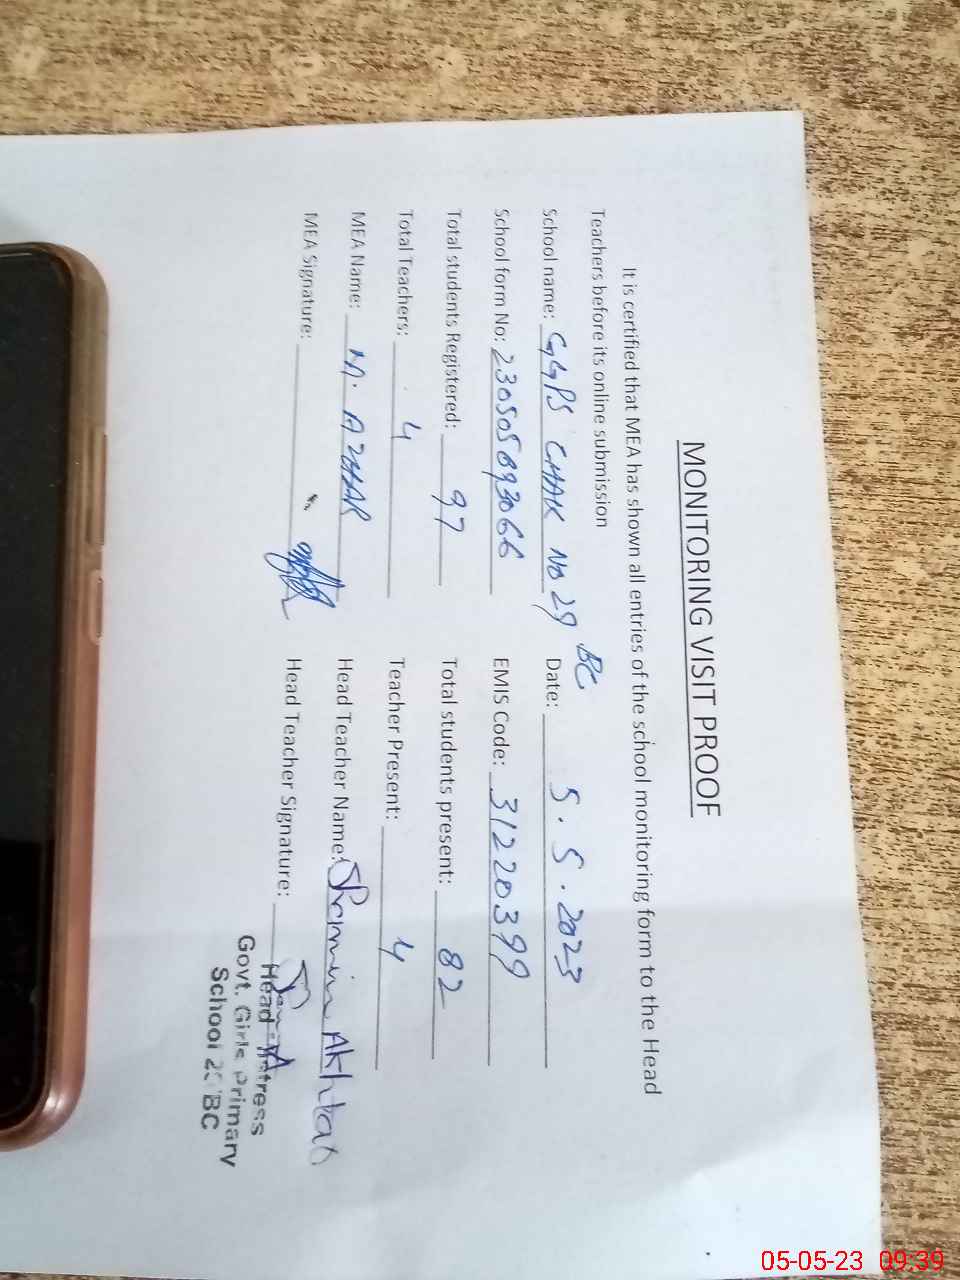 MONITORING VISIT PROOF
It is certified that MEA has shown all entries of the school monitoring form to the Head
Teachers before its online submission
School name: GGPS CHAK NO 29 BC Date: 5.5.2023
School form No: 230505893066 EMIS Code: 31220399
Total students Registered: 97 Total students present: 82
Total Teachers: 4 Teacher Present: 4
MEA Name: M. AZHAR Head Teacher Name: Shamim Akhtar
MEA Signature: Head Teacher Signature:
Head
Govt. Girls Primary
School BC
05-05-23 09:39